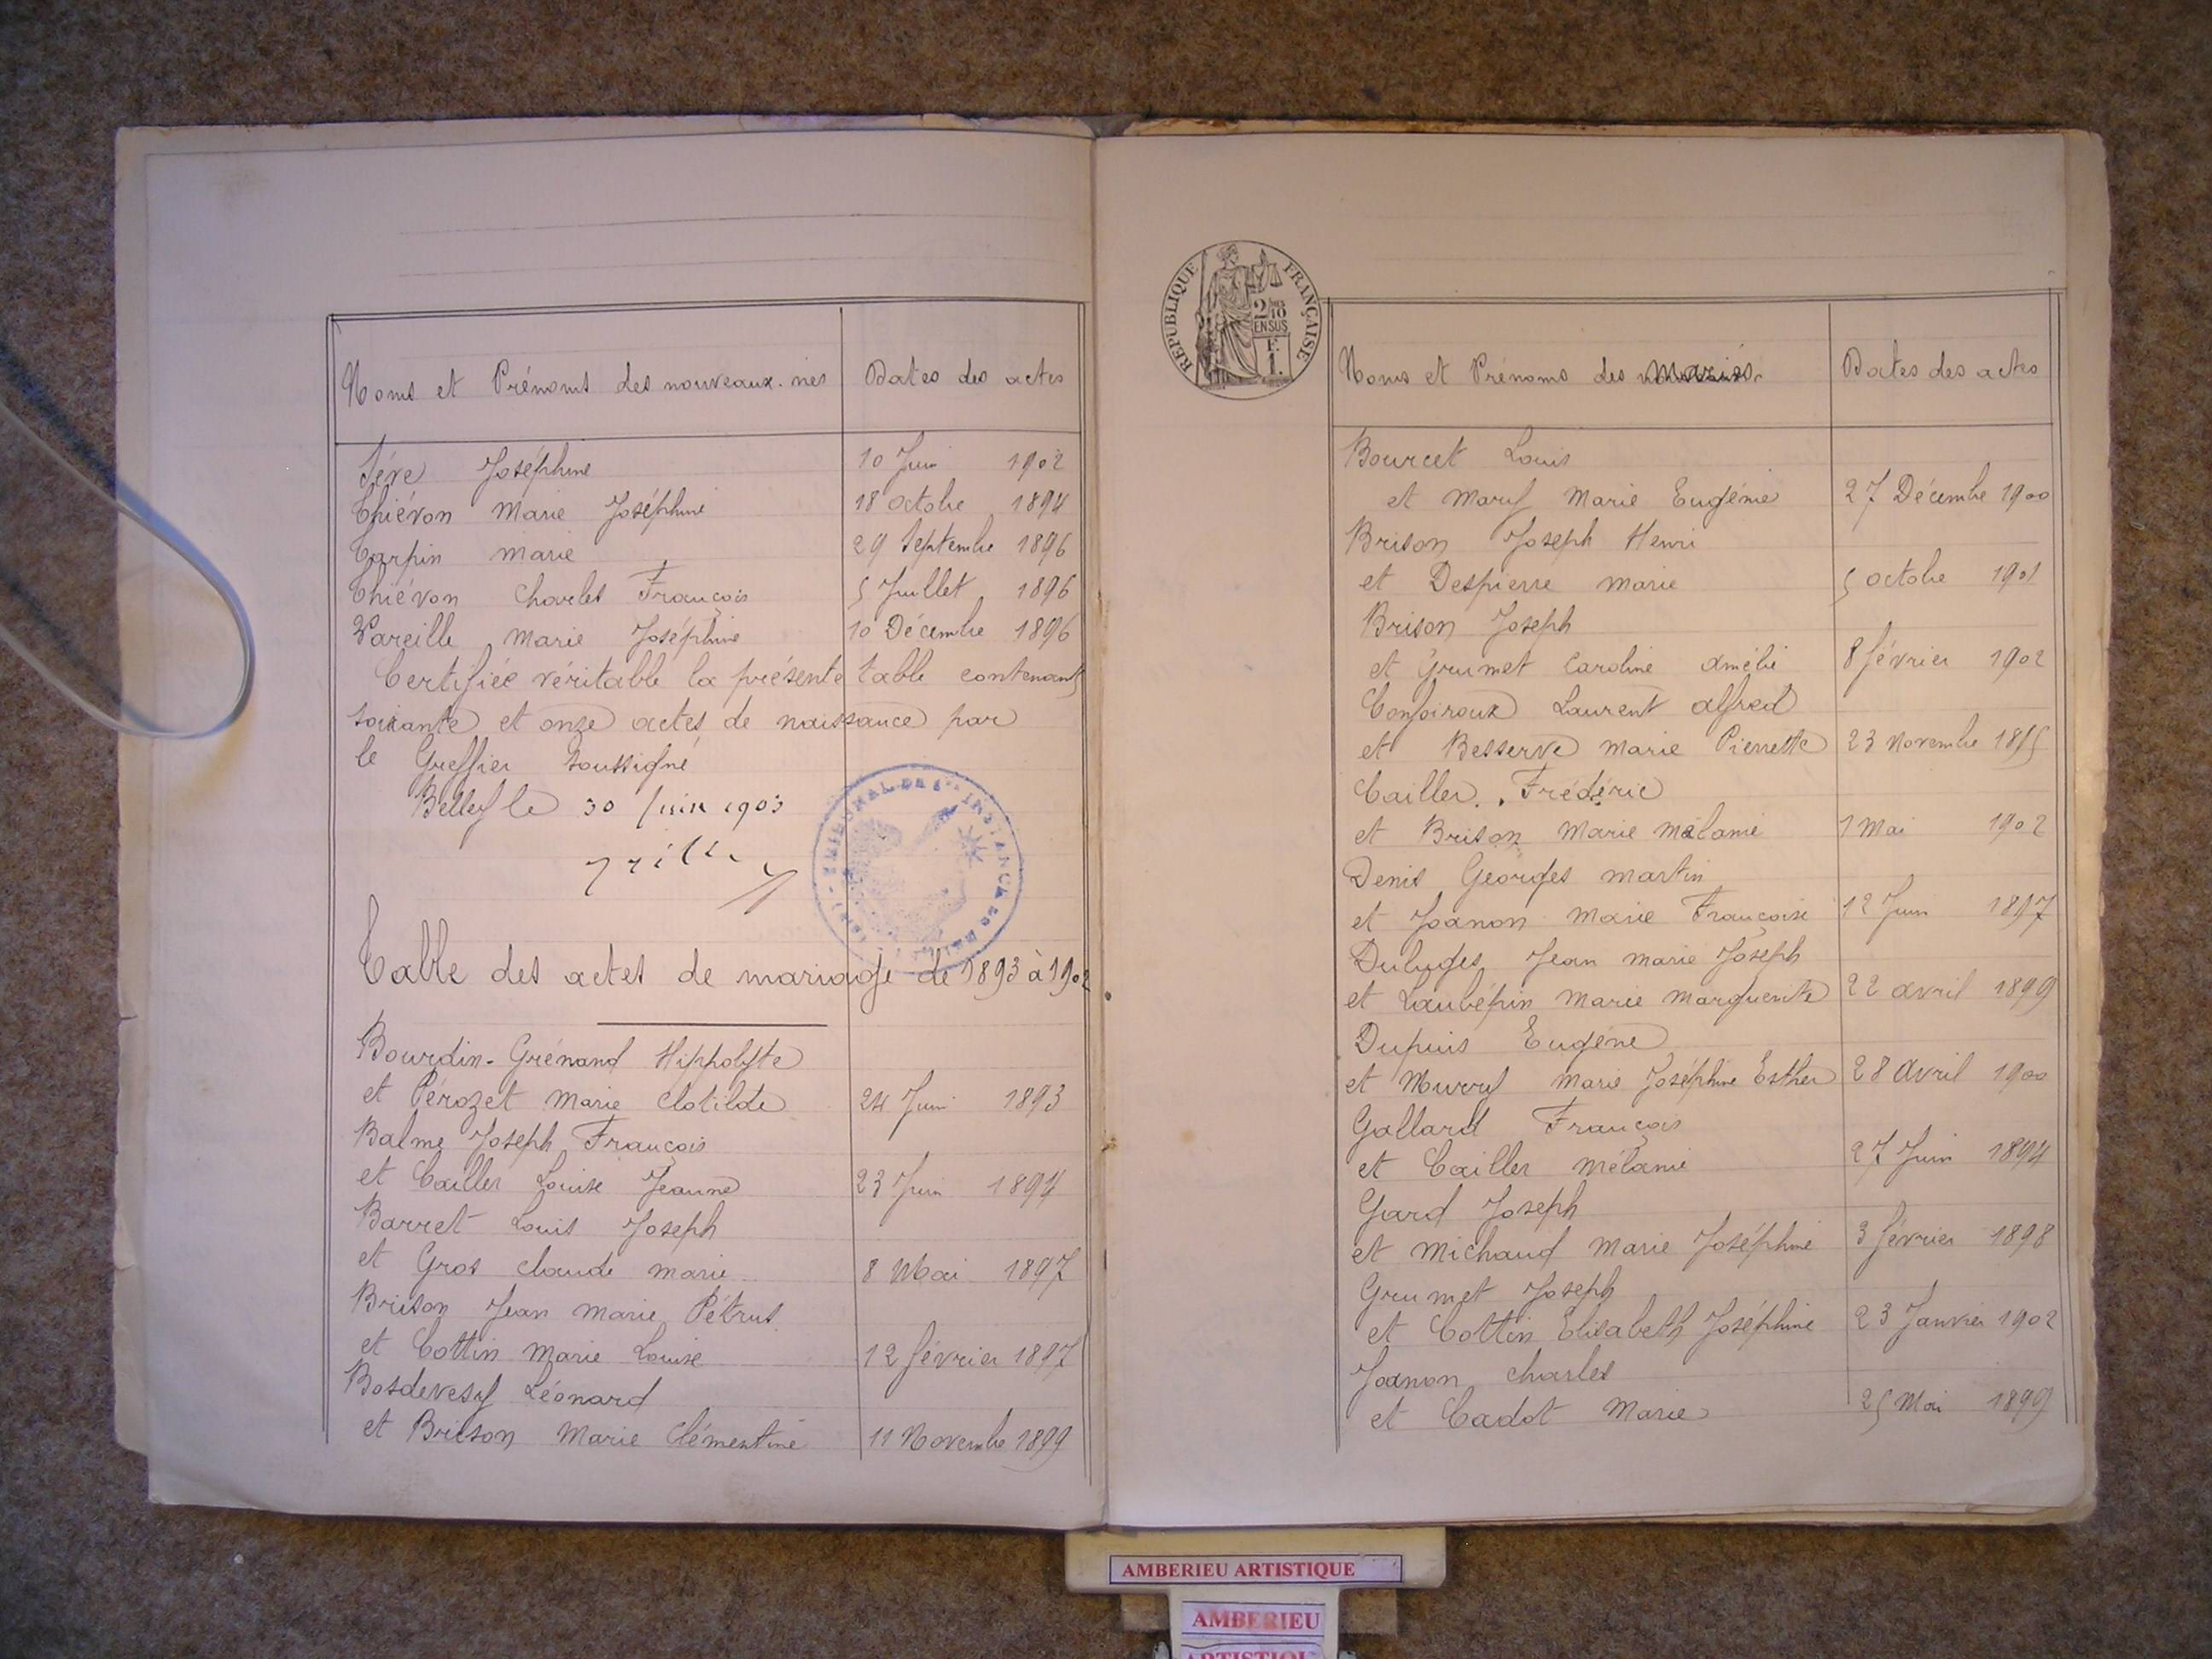 Noms et Prénoms des nouveaux-nés Dates des actes
Sève Joséphine 10 Juin 1902
Thiévon Marie Joséphine 18 octobre 1894
Tarpin Marie 29 Septembre 1896
Thiévon Charles François 5 Juillet 1896
Vareille Marie Joséphine 10 Décembre 1896
Certifiée véritable la présente table contenant
soixante et onze actes de naissance par
le Greffier soussigné
Belley le 30 Juin 1903
TRIBUNAL DE 1re INSTANCE
Table des actes de mariage de 1893 à 1902
Bourdin-Grénand Hippolyte
et Pérozet Marie Clotilde 24 Juin 1893
Balme Joseph François
et Cailler Louise Jeanne 23 Juin 1894
Barret Louis Joseph
et Gros Claude Marie 8 Mai 1897
Brison Jean Marie Pétrus
et Cottin Marie Louise 12 février 1897
Bosdevesy Léonard
et Brison Marie Clémentine 11 Novembre 1899
RÉPUBLIQUE FRANÇAISE
2/10 EN SUS
F. 1.
Noms et Prénoms des mariés Dates des actes
Bourcet Louis
et Mary Marie Eugénie 27 Décembre 1900
Brison Joseph Henri
et Despierre Marie 5 octobre 1901
Brison Joseph
et Grumet Caroline Amélie 8 février 1902
Confoiroux Laurent Alfred
et Besserve Marie Pierrette 23 Novembre 1895
Cailler Frédéric
et Brison Marie Mélanie 1 Mai 1902
Denis Georges Martin
et Joanon Marie Françoise 12 Juin 1897
Duluges Jean Marie Joseph
et Laubépin Marie Marguerite 22 avril 1899
Dupuis Eugène
et Marie Joséphine Esther 28 Avril 1900
Gallard François
et Cailler Mélanie 27 Juin 1894
Gard Joseph
et Michaud Marie Joséphine 3 février 1898
Grumet Joseph
et Cottin Elisabeth Joséphine 23 Janvier 1902
Joanon Charles
et Cadot Marie 25 Mai 1899
AMBERIEU ARTISTIQUE
AMBERIEU
ARTISTIQUE